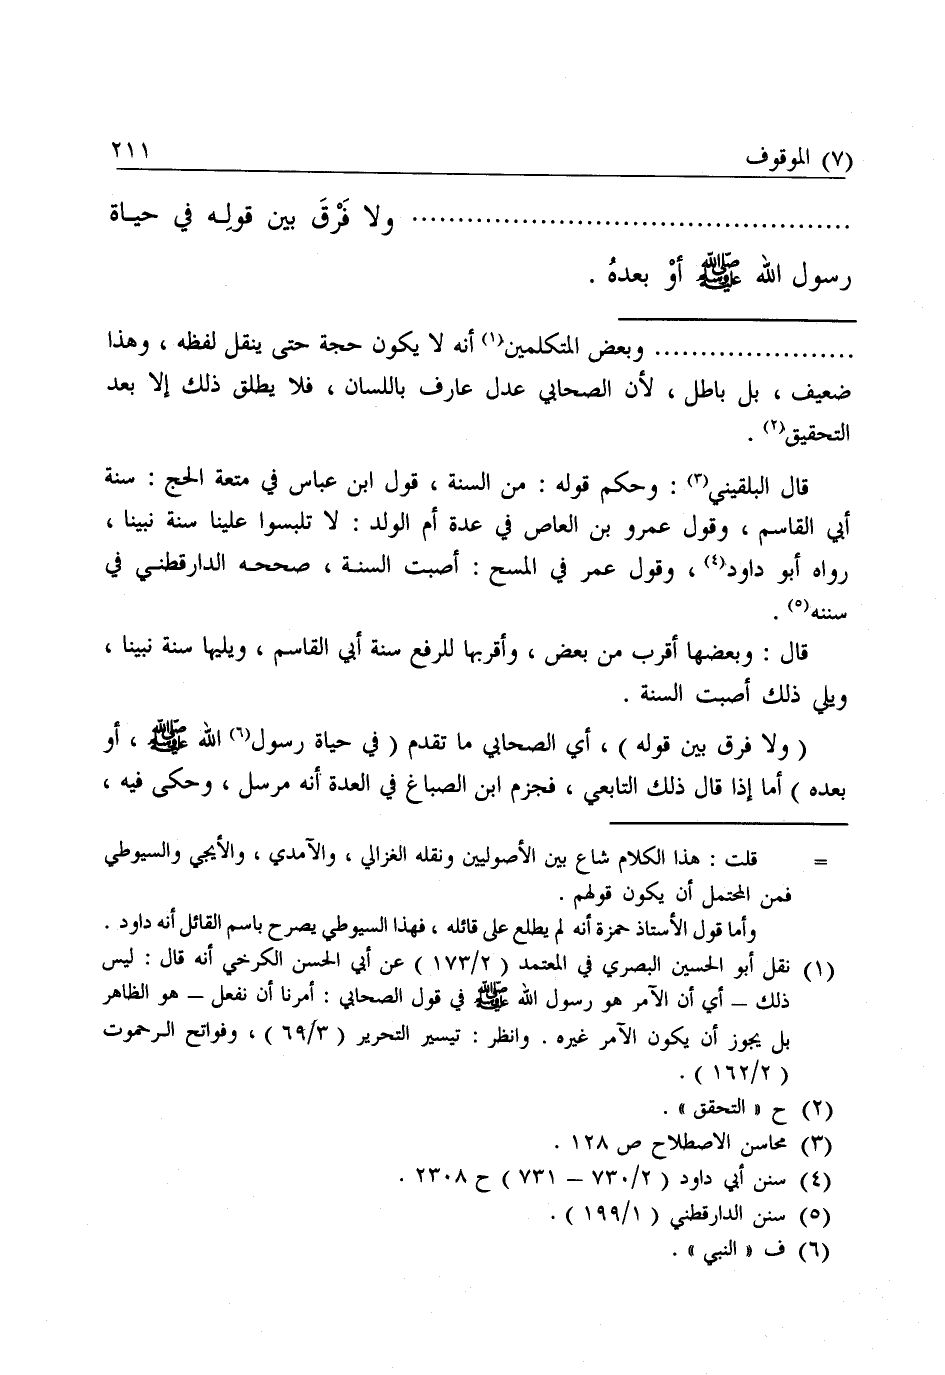 (٧) الموقوف ٢١١
................................................ ولا فَرْقَ بين قولِه في حياة
رسول الله ﷺ أوْ بعدهُ .
...................... وبعض المتكلمين(١) أنه لا يكون حجة حتى ينقل لفظه ، وهذا
ضعيف ، بل باطل ، لأن الصحابي عدل عارف باللسان ، فلا يطلق ذلك إلا بعد
التحقيق(٢) .
قال البلقيني(٣) : وحكم قوله : من السنة ، قول ابن عباس في متعة الحج : سنة
أبي القاسم ، وقول عمرو بن العاص في عدة أم الولد : لا تلبسوا علينا سنة نبينا ،
رواه أبو داود(٤) ، وقول عمر في المسح : أصبت السنة ، صححه الدارقطني في
سننه(٥) .
قال : وبعضها أقرب من بعض ، وأقربها للرفع سنة أبي القاسم ، ويليها سنة نبينا ،
ويلي ذلك أصبت السنة .
( ولا فرق بين قوله ) ، أي الصحابي ما تقدم ( في حياة رسول(٦) الله ﷺ ، أو
بعده ) أما إذا قال ذلك التابعي ، فجزم ابن الصباغ في العدة أنه مرسل ، وحكى فيه ،
= قلت : هذا الكلام شاع بين الأصوليين ونقله الغزالي ، والآمدي ، والأيجي والسيوطي
فمن المحتمل أن يكون قولهم .
وأما قول الأستاذ حمزة أنه لم يطلع على قائله ، فهذا السيوطي يصرح باسم القائل أنه داود .
(١) نقل أبو الحسين البصري في المعتمد ( ١٧٣/٢ ) عن أبي الحسن الكرخي أنه قال : ليس
ذلك – أي أن الآمر هو رسول الله ﷺ في قول الصحابي : أمرنا أن نفعل – هو الظاهر
بل يجوز أن يكون الآمر غيره . وانظر : تيسير التحرير ( ٦٩/٣ ) ، وفواتح الرحموت
( ١٦٢/٢ ) .
(٢) ح « التحقق » .
(٣) محاسن الاصطلاح ص ١٢٨ .
(٤) سنن أبي داود ( ٧٣٠/٢ – ٧٣١ ) ح ٢٣٠٨ .
(٥) سنن الدارقطني ( ١٩٩/١ ) .
(٦) ف « النبي » .